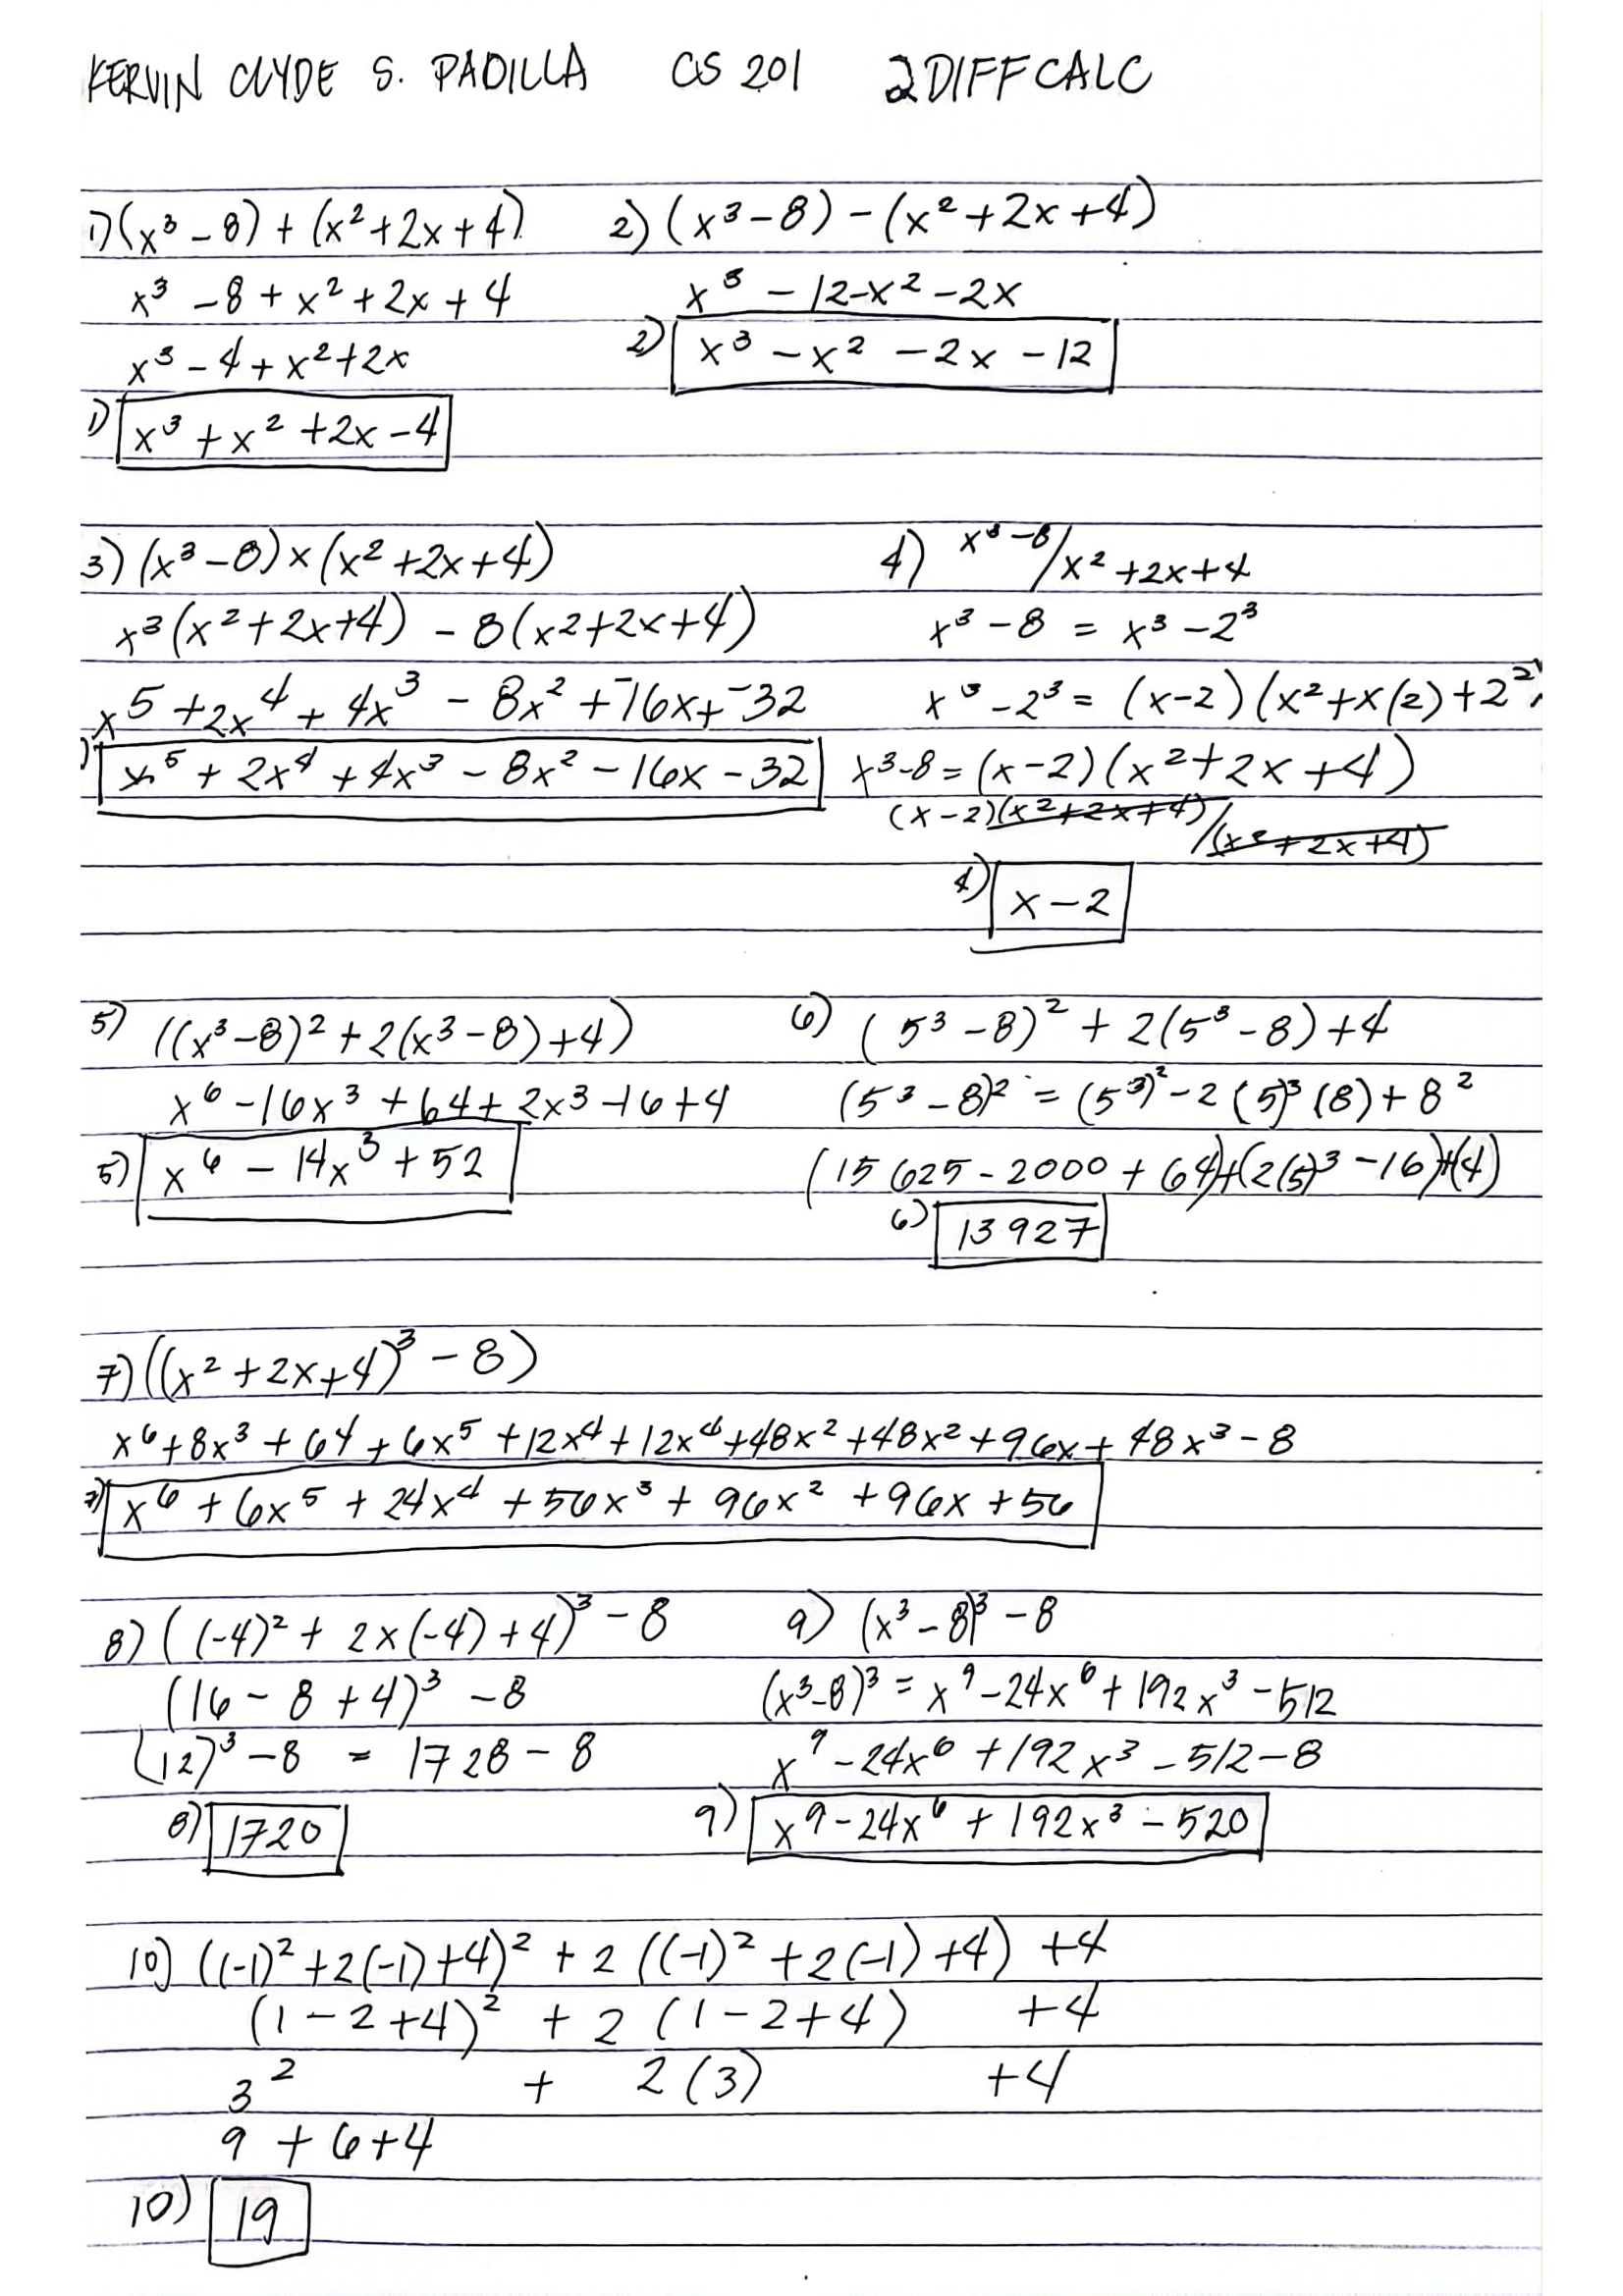 KERVIN CLYDE S. PADILLA CS 201 2DIFFCALC
1) (x³ - 8) + (x² + 2x + 4)
x³ - 8 + x² + 2x + 4
x³ - 4 + x² + 2x
1) x³ + x² + 2x - 4
2) (x³ - 8) - (x² + 2x + 4)
x³ - 12 - x² - 2x
2) x³ - x² - 2x - 12
3) (x³ - 8) × (x² + 2x + 4)
x³(x² + 2x + 4) - 8(x² + 2x + 4)
x⁵ + 2x⁴ + 4x³ - 8x² + -16x + -32
) x⁵ + 2x⁴ + 4x³ - 8x² - 16x - 32
4) x³ - 8/x² + 2x + 4
x³ - 8 = x³ - 2³
x³ - 2³ = (x - 2)(x² + x(2) + 2²)
x³ - 8 = (x - 2)(x² + 2x + 4)
(x - 2)(x² + 2x + 4)/(x² + 2x + 4)
4) x - 2
5) ((x³ - 8)² + 2(x³ - 8) + 4)
x⁶ - 16x³ + 64 + 2x³ - 16 + 4
5) x⁶ - 14x³ + 52
6) (5³ - 8)² + 2(5³ - 8) + 4
(5³ - 8)² = (5³)² - 2(5)³(8) + 8²
(15 625 - 2000 + 64) + (2(5)³ - 16) + (4)
6) 13 927
7) ((x² + 2x + 4)³ - 8)
x⁶ + 8x³ + 64 + 6x⁵ + 12x⁴ + 12x⁴ + 48x² + 48x² + 96x + 48x³ - 8
7) x⁶ + 6x⁵ + 24x⁴ + 56x³ + 96x² + 96x + 56
8) ((-4)² + 2 × (-4) + 4)³ - 8
(16 - 8 + 4)³ - 8
(12)³ - 8 = 1728 - 8
8) 1720
9) (x³ - 8)³ - 8
(x³ - 8)³ = x⁹ - 24x⁶ + 192x³ - 512
x⁹ - 24x⁶ + 192x³ - 512 - 8
9) x⁹ - 24x⁶ + 192x³ - 520
10) ((-1)² + 2(-1) + 4)² + 2((-1)² + 2(-1) + 4) + 4
(1 - 2 + 4)² + 2(1 - 2 + 4) + 4
3² + 2(3) + 4
9 + 6 + 4
10) 19